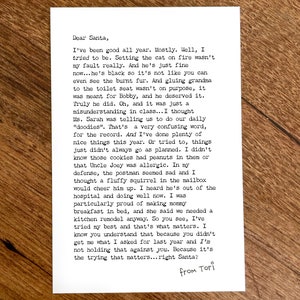 Dear Santa,
I've been good all year. Mostly. Well, I
tried to be. Setting the cat on fire wasn't
my fault really. And he's just fine
now...he's black so it's not like you can
even see the burnt fur. And gluing grandma
to the toilet seat wasn't on purpose, it
was meant for Bobby, and he deserved it.
Truly he did. Oh, and it was just a
misunderstanding in class...I thought
Ms. Sarah was telling us to do our daily
"doodies". That's a very confusing word,
for the record. And I've done plenty of
nice things this year. Or tried to, things
just didn't always go as planned. I didn't
know those cookies had peanuts in them or
that Uncle Joey was allergic. In my
defense, the postman seemed sad and I
thought a fluffy squirrel in the mailbox
would cheer him up. I heard he's out of the
hospital and doing well now. I was
particularly proud of making mommy
breakfast in bed, and she said we needed a
kitchen remodel anyway. So you see, I've
tried my best and that's what matters. I
know you understand that because you didn't
get me what I asked for last year and I'm
not holding that against you. Because it's
the trying that matters...right Santa?
from Tori